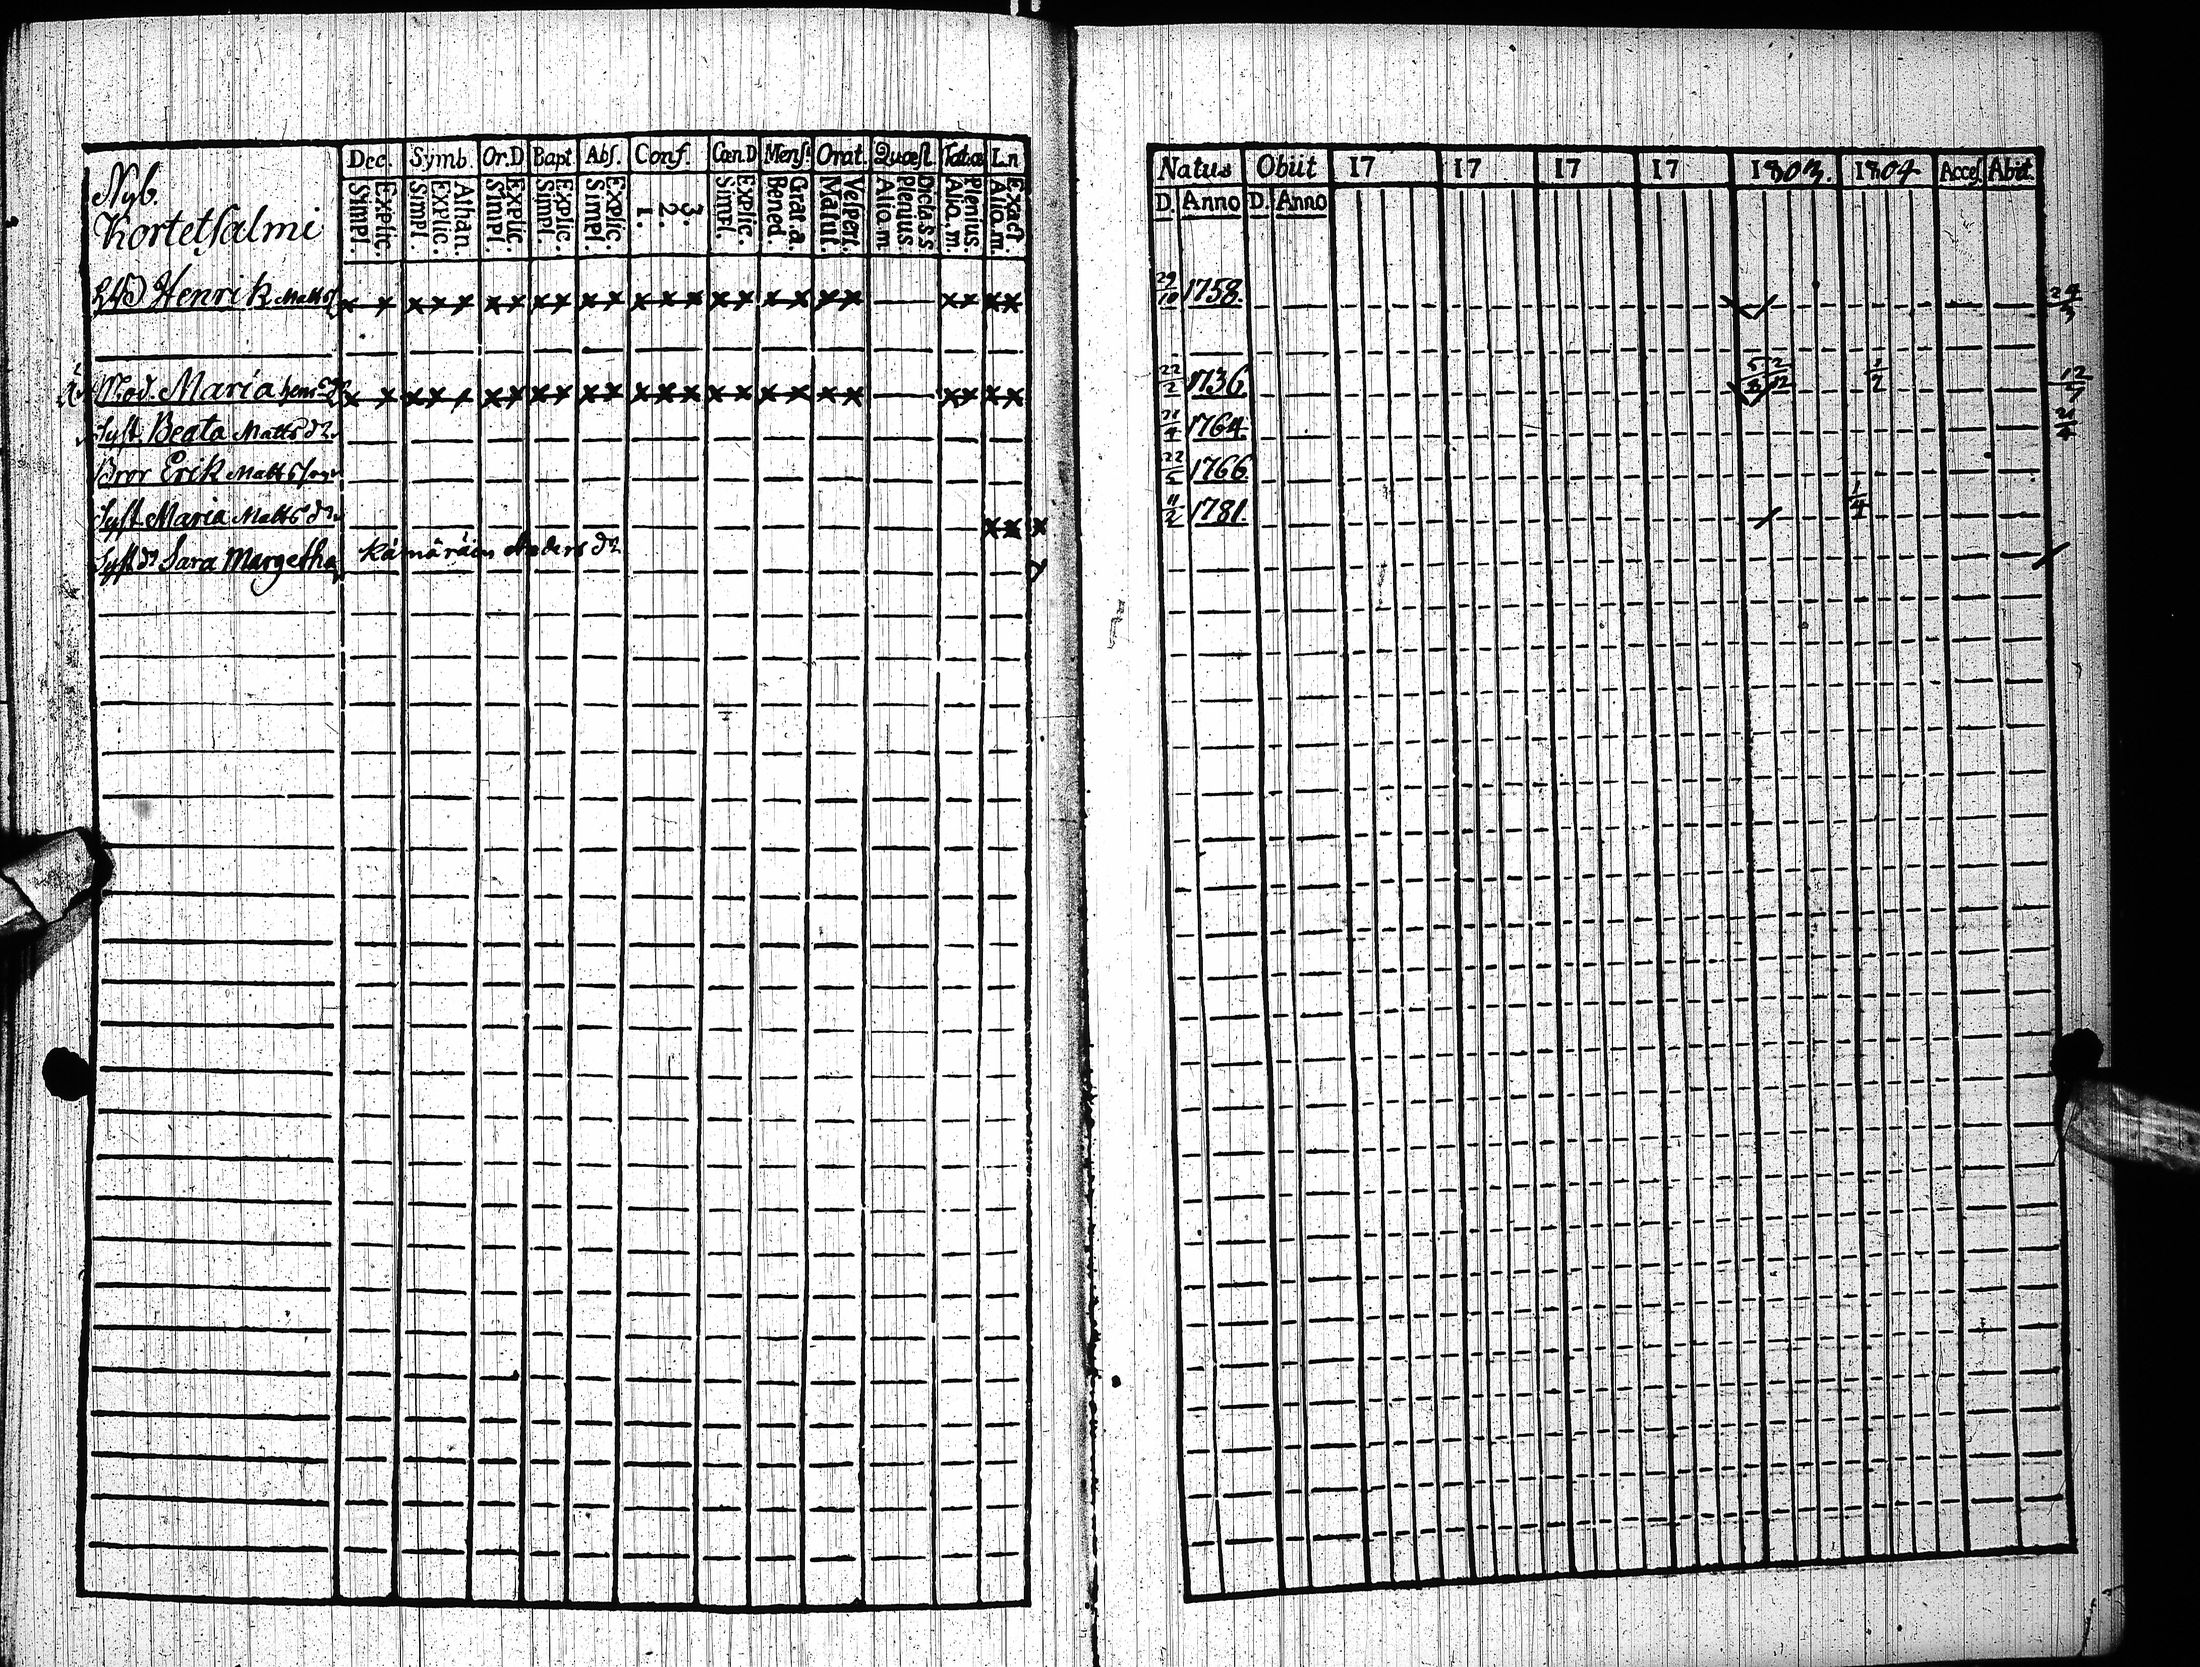 Nyb.
Kortetsalmi
Dec. Symb. Or.D Bapt. Abs. Conf. CœnD Mens. Orat. Quæst. Tabæ Ln
Explic. Simpl. Athan. Explic. Simpl. Explic. Simpl. Explic. Simpl. Explic. Simpl. 3. 2. 1. Explic. Simpl. Grat.a. Bened. Vespert. Matut. Dicta.s.s. Plenius Alio.m Plenius. Alio.m. Exact. Alio.m.
Henrik Matts x x x x x x x x x x x x x x x x x x x x x x x x
Mod. Maria x x x x x x x x x x x x x x x x x x x x x x x x
Syst. Beata Matts dr
Bror Erik Mattsson
Syst Maria Matts dr x x x
Syst dr Sara Margetha Kämäräin Anders dr
Natus Obiit 17 17 17 17 1803. 1804 Acces. Abiit.
D. Anno D. Anno
29/10 1758. 24/3
22/2 1736 5/3 2/12 1/2 12/7
21/4 1764. 21/4
22/5 1766
11/2 1781. 1/4